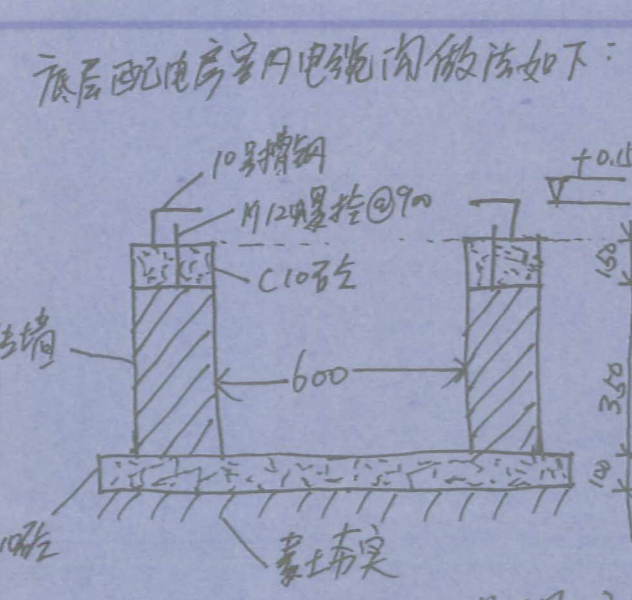 底层配电房室内电缆沟做法如下:
10号槽钢
+0.15
M12螺栓@900
C10砼
150
墙
600
350
100
10砼
素土夯实